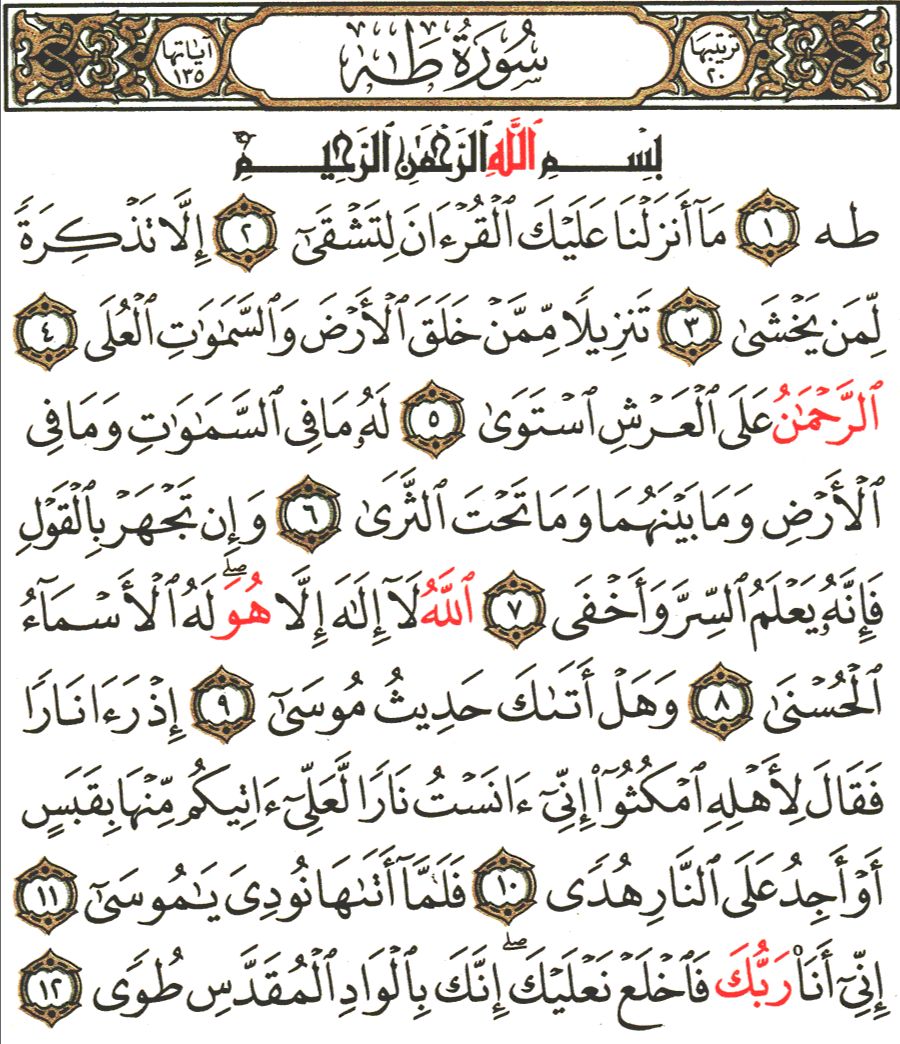 ترتيبها ٢٠ سُورَةُ طَهٰ آياتها ١٣٥
بِسْمِ ٱللَّهِ ٱلرَّحْمَٰنِ ٱلرَّحِيمِ
طه ١ مَآ أَنزَلْنَا عَلَيْكَ ٱلْقُرْءَانَ لِتَشْقَىٰٓ ٢ إِلَّا تَذْكِرَةً
لِّمَن يَخْشَىٰ ٣ تَنزِيلًا مِّمَّنْ خَلَقَ ٱلْأَرْضَ وَٱلسَّمَٰوَٰتِ ٱلْعُلَى ٤
ٱلرَّحْمَٰنُ عَلَى ٱلْعَرْشِ ٱسْتَوَىٰ ٥ لَهُۥ مَا فِى ٱلسَّمَٰوَٰتِ وَمَا فِى
ٱلْأَرْضِ وَمَا بَيْنَهُمَا وَمَا تَحْتَ ٱلثَّرَىٰ ٦ وَإِن تَجْهَرْ بِٱلْقَوْلِ
فَإِنَّهُۥ يَعْلَمُ ٱلسِّرَّ وَأَخْفَى ٧ ٱللَّهُ لَآ إِلَٰهَ إِلَّا هُوَ ۖ لَهُ ٱلْأَسْمَآءُ
ٱلْحُسْنَىٰ ٨ وَهَلْ أَتَىٰكَ حَدِيثُ مُوسَىٰٓ ٩ إِذْ رَءَا نَارًا
فَقَالَ لِأَهْلِهِ ٱمْكُثُوٓا۟ إِنِّىٓ ءَانَسْتُ نَارًا لَّعَلِّىٓ ءَاتِيكُم مِّنْهَا بِقَبَسٍ
أَوْ أَجِدُ عَلَى ٱلنَّارِ هُدًى ١٠ فَلَمَّآ أَتَىٰهَا نُودِىَ يَٰمُوسَىٰٓ ١١
إِنِّىٓ أَنَا۠ رَبُّكَ فَٱخْلَعْ نَعْلَيْكَ ۖ إِنَّكَ بِٱلْوَادِ ٱلْمُقَدَّسِ طُوًى ١٢